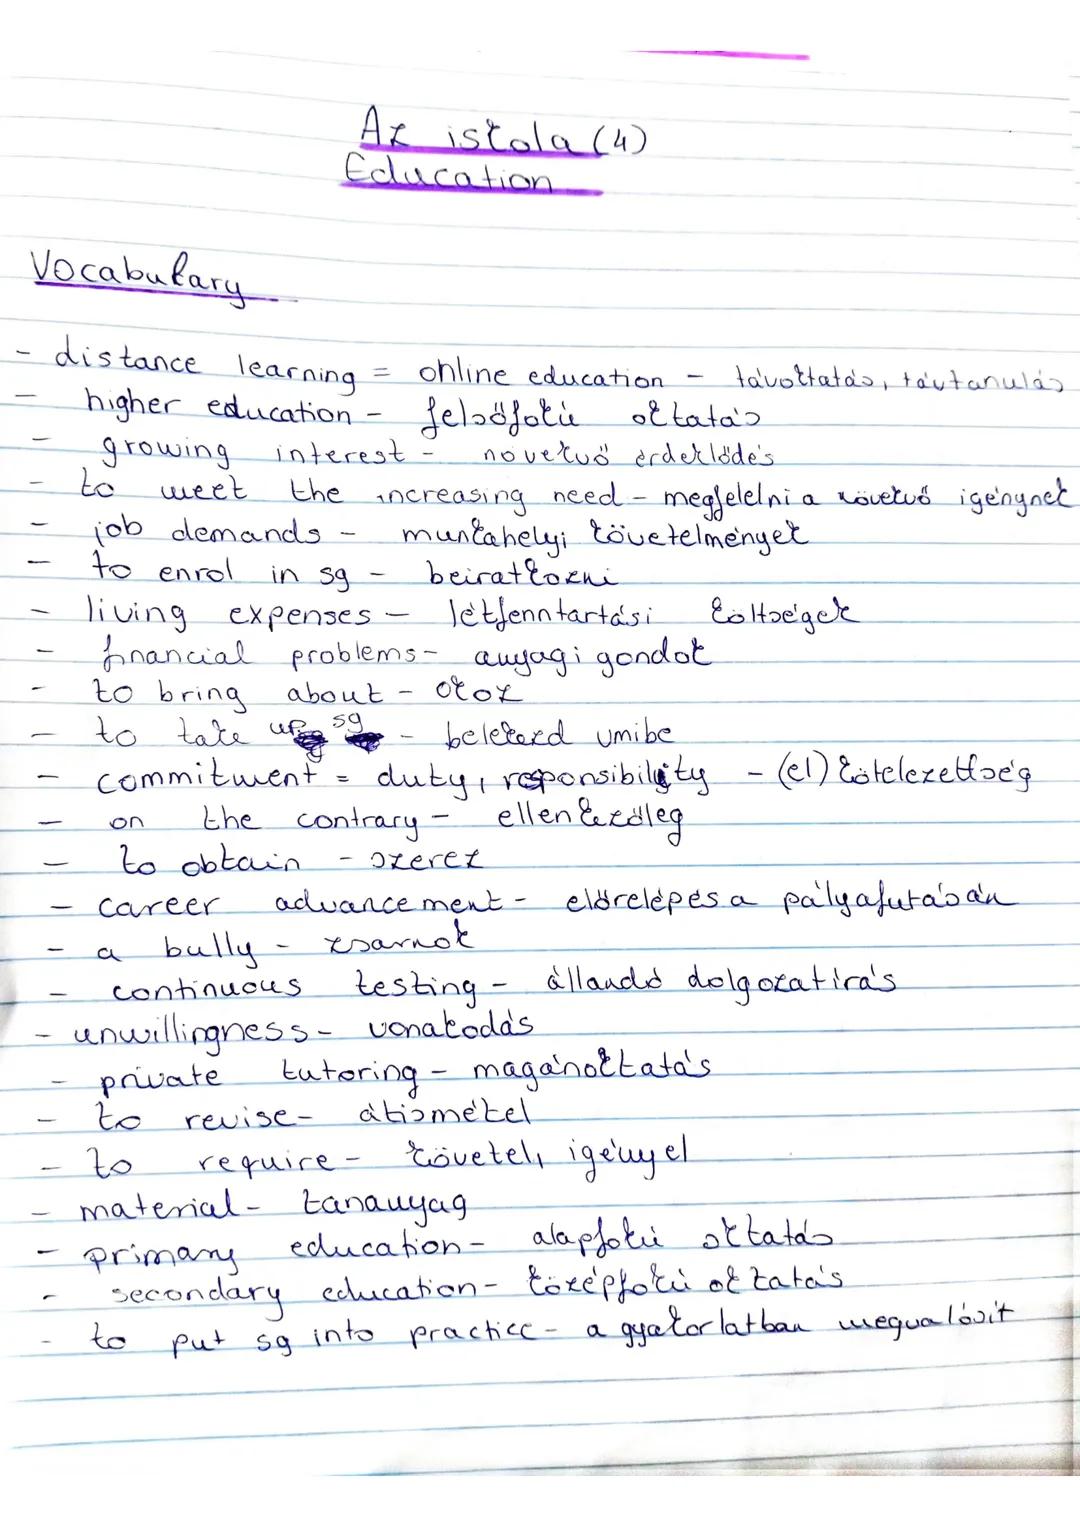 Az iskola (4)
Education
Vocabulary
- distance learning = online education - távoktatás, távtanulás
- higher education - felsőfokú oktatás
- growing interest - növekvő érdeklődés
- to meet the increasing need - megfelelni a növekvő igénynek
- job demands - munkahelyi követelmények
- to enrol in sg - beiratkozni
- living expenses - létfenntartási költségek
- financial problems - anyagi gondok
- to bring about - okoz
- to take up sg - belekezd vmibe
- commitment = duty, responsibility - (el)kötelezettség
- on the contrary - ellenkezőleg
- to obtain - szerez
- career advancement - előrelépés a pályafutásán
- a bully - zsarnok
- continuous testing - állandó dolgozatírás
- unwillingness - vonakodás
- private tutoring - magánoktatás
- to revise - átismétel
- to require - követel, igényel
- material - tananyag
- primary education - alapfokú oktatás
- secondary education - középfokú oktatás
- to put sg into practice - a gyakorlatban megvalósít